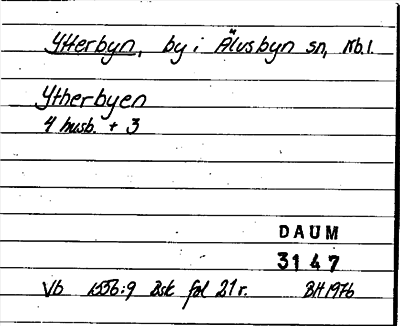 Ytterbyn, by i Älvsbyn sn, Nb.l.
Ytherbyen
4 husb. + 3
DAUM
3147
Vb 1556:9 Bsk fol 21r. BH 1976